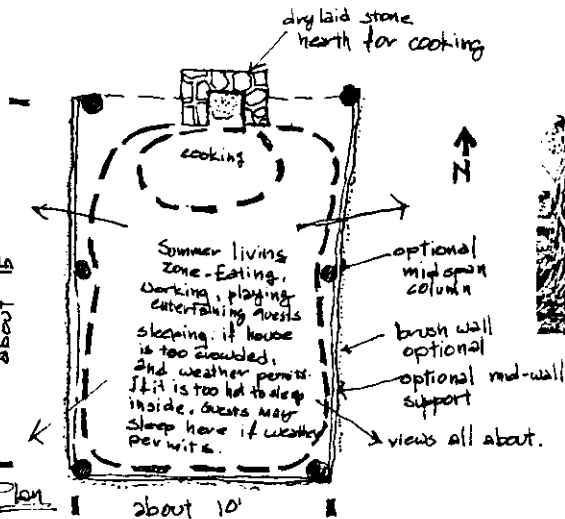 dry laid stone
hearth for cooking
cooking
N
Summer living
zone-Eating,
working, playing
entertaining guests
sleeping if house
is too crowded,
and weather permits.
If it is too hot to sleep
inside, guests may
sleep here if weather
permits.
optional
mid span
column
brush wall
optional
optional mid-wall
support
views all about.
about 15
Plan
about 10'